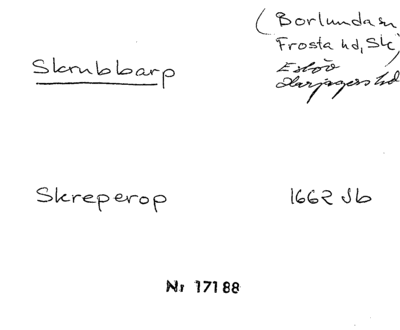 (Borlunda sn
Frosta hd, Sk)
Skrubbarp
Eslöv
Harjagers hd
Skreperop 1662 Jb
Nr 17188